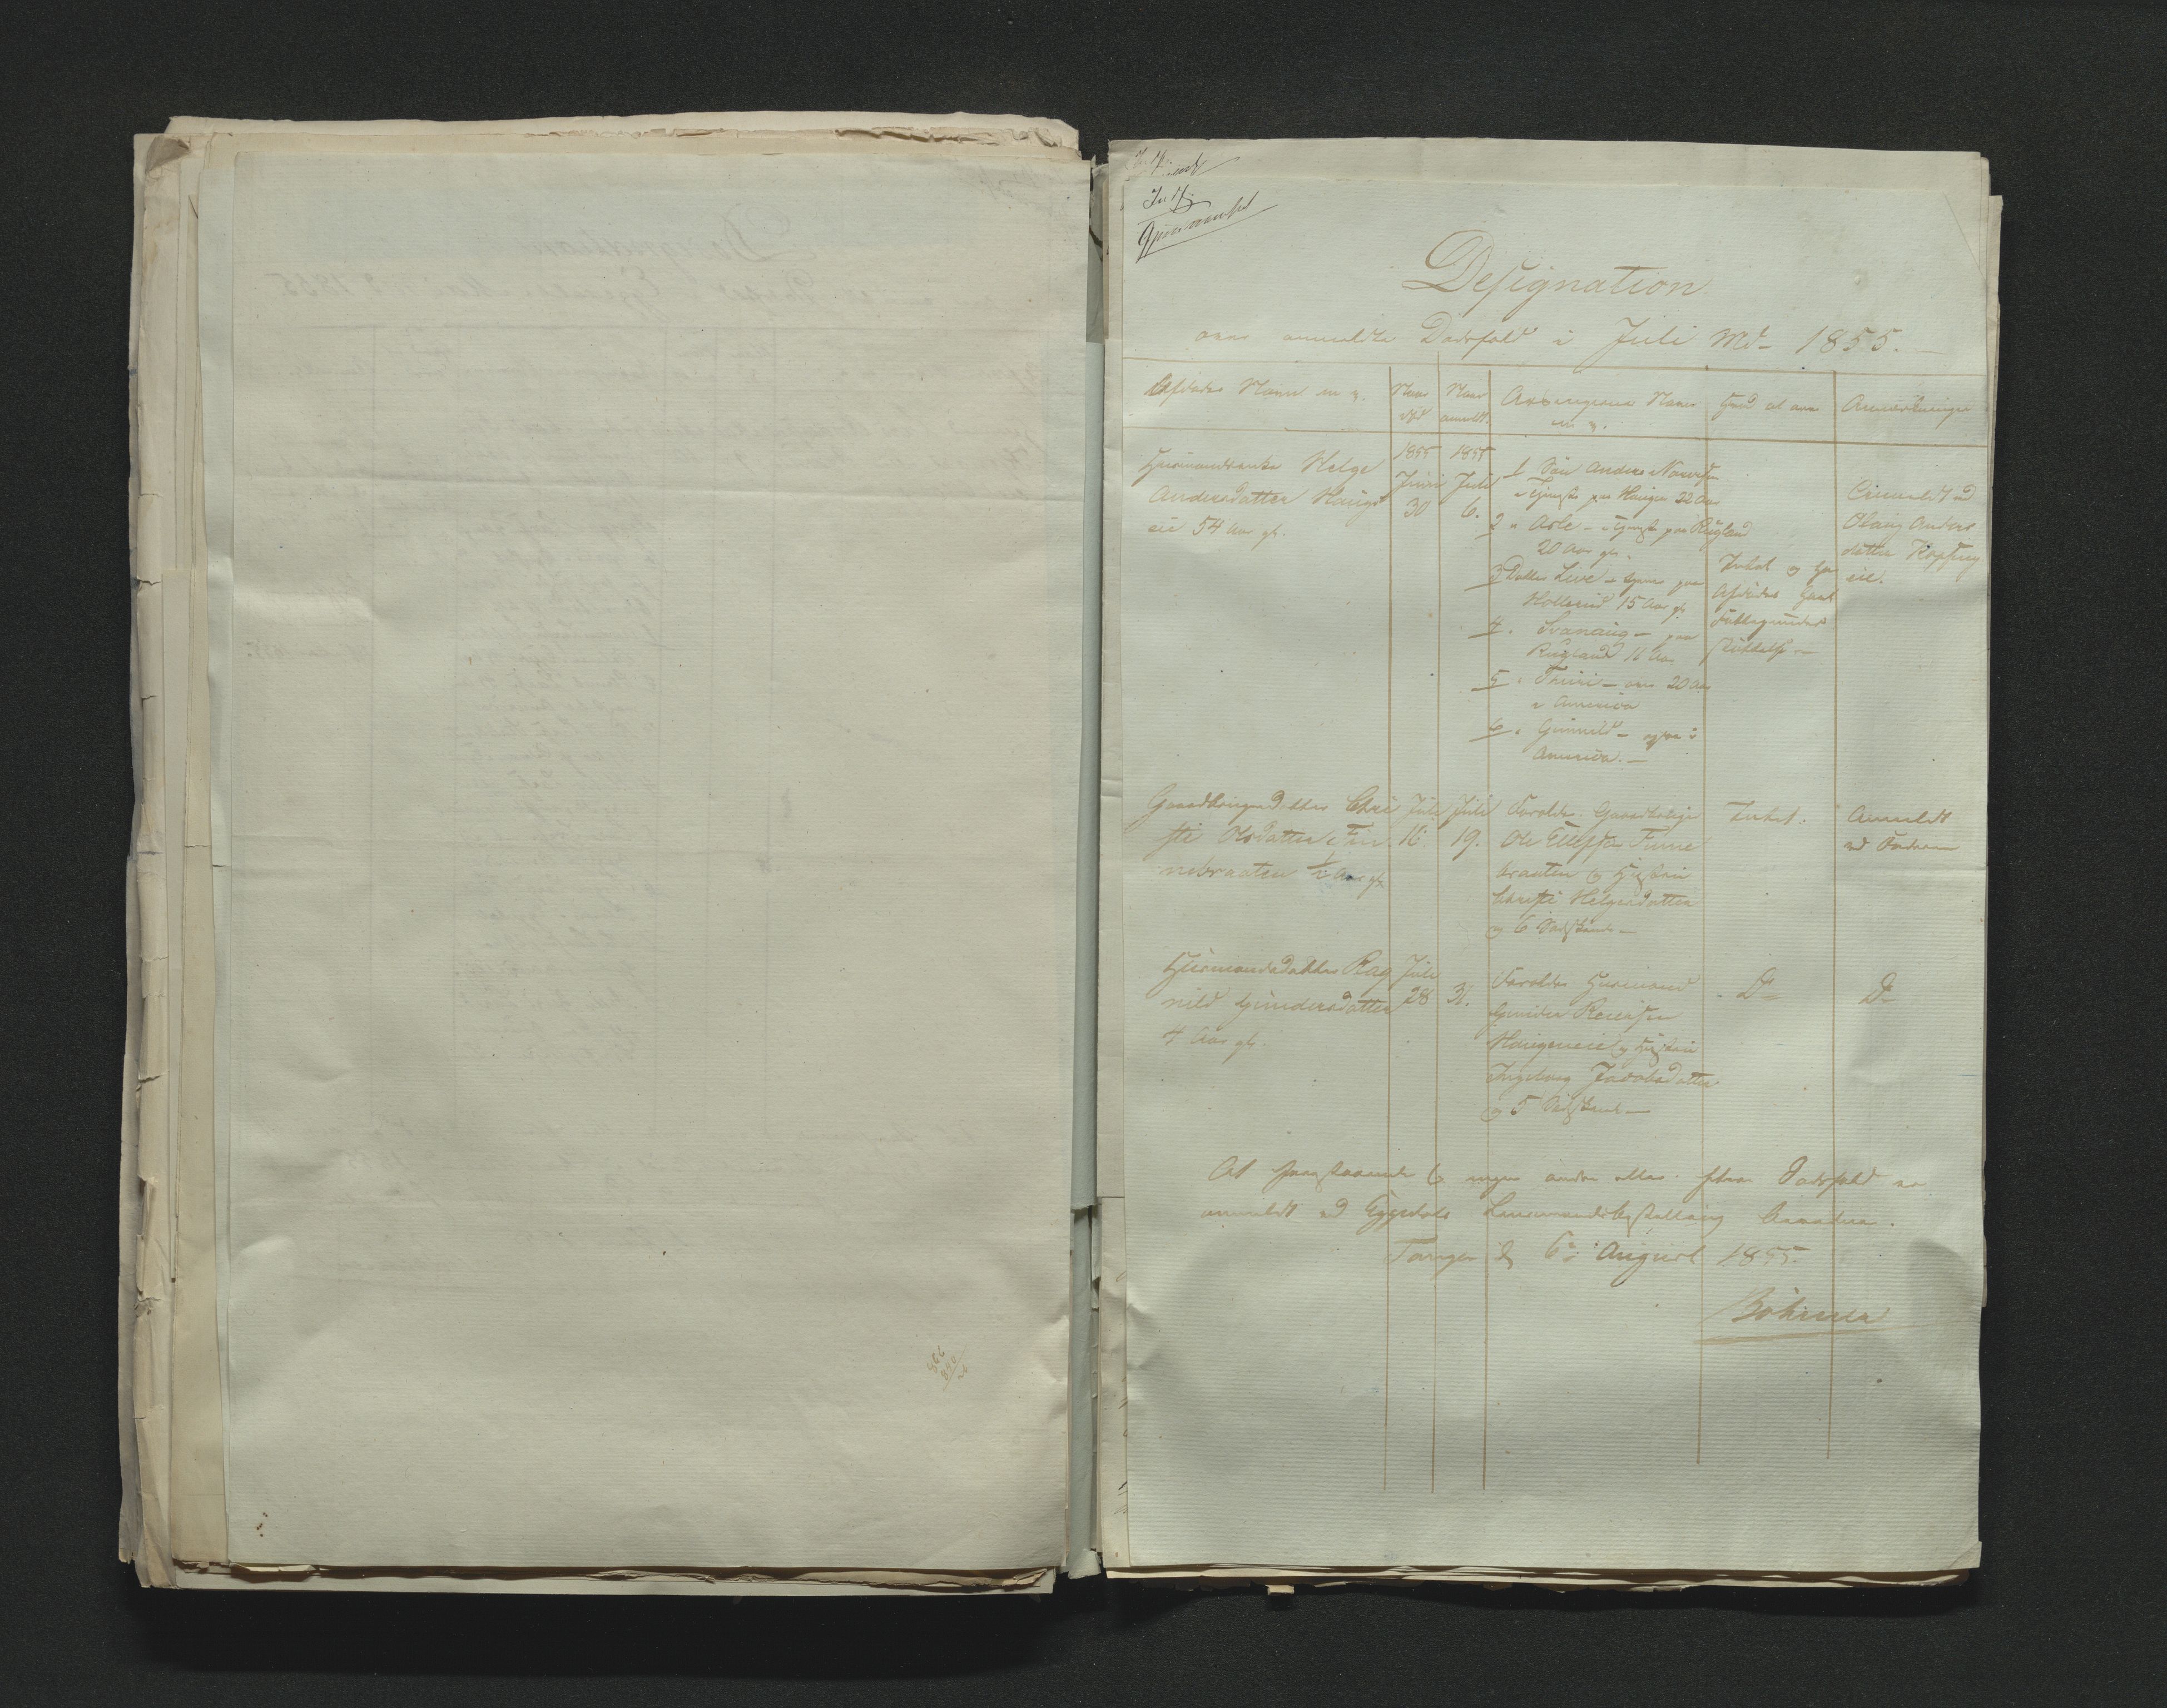 Designation
over anmeldte Dødsfald i Juli Md- 1855.
Afdødes Navn m. v.
Naar død
Naar anmeldt.
Arvingernes Navne m. v.
Hvad at arve
Anmærkninger
Huusmandsenke Helge
Andersdatter Haugs
eie 54 Aar gl.
1855
Juni
30
1855
Juli
6.
1 Søn Anders
i Tjeneste paa Haugen 22 Aar
2 " Asle - i Tjeneste paa Rugland
20 Aar gl.
3 Datter Live - tjener paa
15 Aar gl.
4. " Svanaug - paa
Rugland 11 Aar
5 " Thuri - over 20 Aar
i America
6 " Gunnild - ogsaa i
America. -
Intet og har
Afdøde havt
Fattigunder
støttelse. -
Anmeldt ved
Olaug Anders
datter
eie.
Gaardbrugerdatter Chri
sti Olsdatter Fin
nebraaten ½ Aar gl.
Juli
16
Juli
19.
Forældre Gaardbruger
Ole Ellefsen Finne
braaten og Hustru
Christi Helgesdatter
og 6 Søskende -
Intet.
Anmeldt
ved Faderen
Huusmandsdatter Rag
nild Gundersdatter
4 Aar gl.
Juli
28
31.
Forældre Huusmand
Gunder Reiersen
Haugeneie og Hustru
Ingeborg Jacobsdatter
og 5 Søskende -
Do
Do
At foranstaaende og ingen andre eller flere Dødsfald er
anmeldt ved Eggedals Lensmandsbestilling
Tangen d. 6te August 1855.